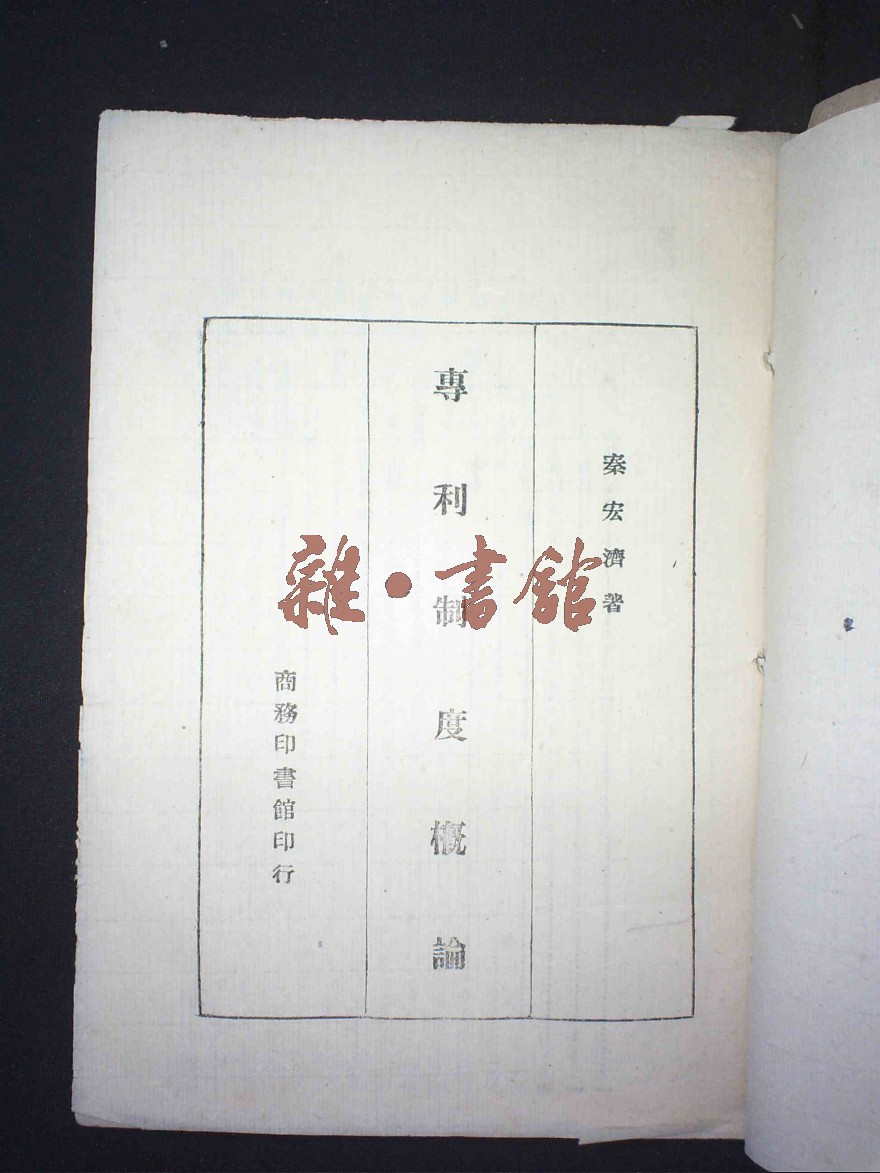 秦宏濟著
專利制度概論
商務印書館印行
雜·書館